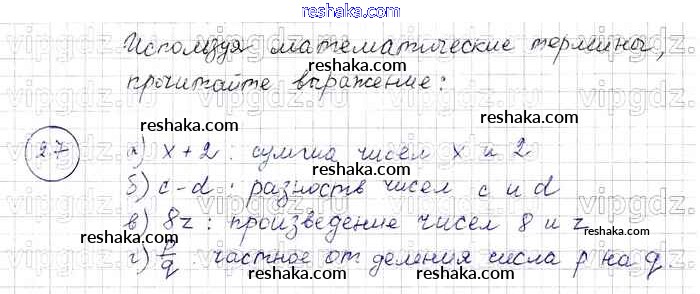 reshaka.com
Используя математические термины,
reshaka.com
прочитайте выражение:
reshaka.com reshaka.com
2.7 а) x + 2 : сумма чисел x и 2
б) c - d : разность чисел c и d
reshaka.com reshaka.com
в) 8z : произведение чисел 8 и z
reshaka.com reshaka.com reshaka.com
г) p/q : частное от деления числа p на q.
reshaka.com reshaka.com